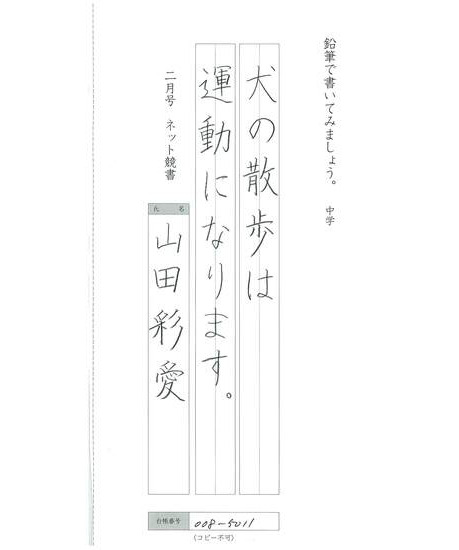 鉛筆で書いてみましょう。 中学
犬の散歩は
運動になります。
二月号 ネット競書
氏 名
山田彩愛
台帳番号 008-5011
(コピー不可)